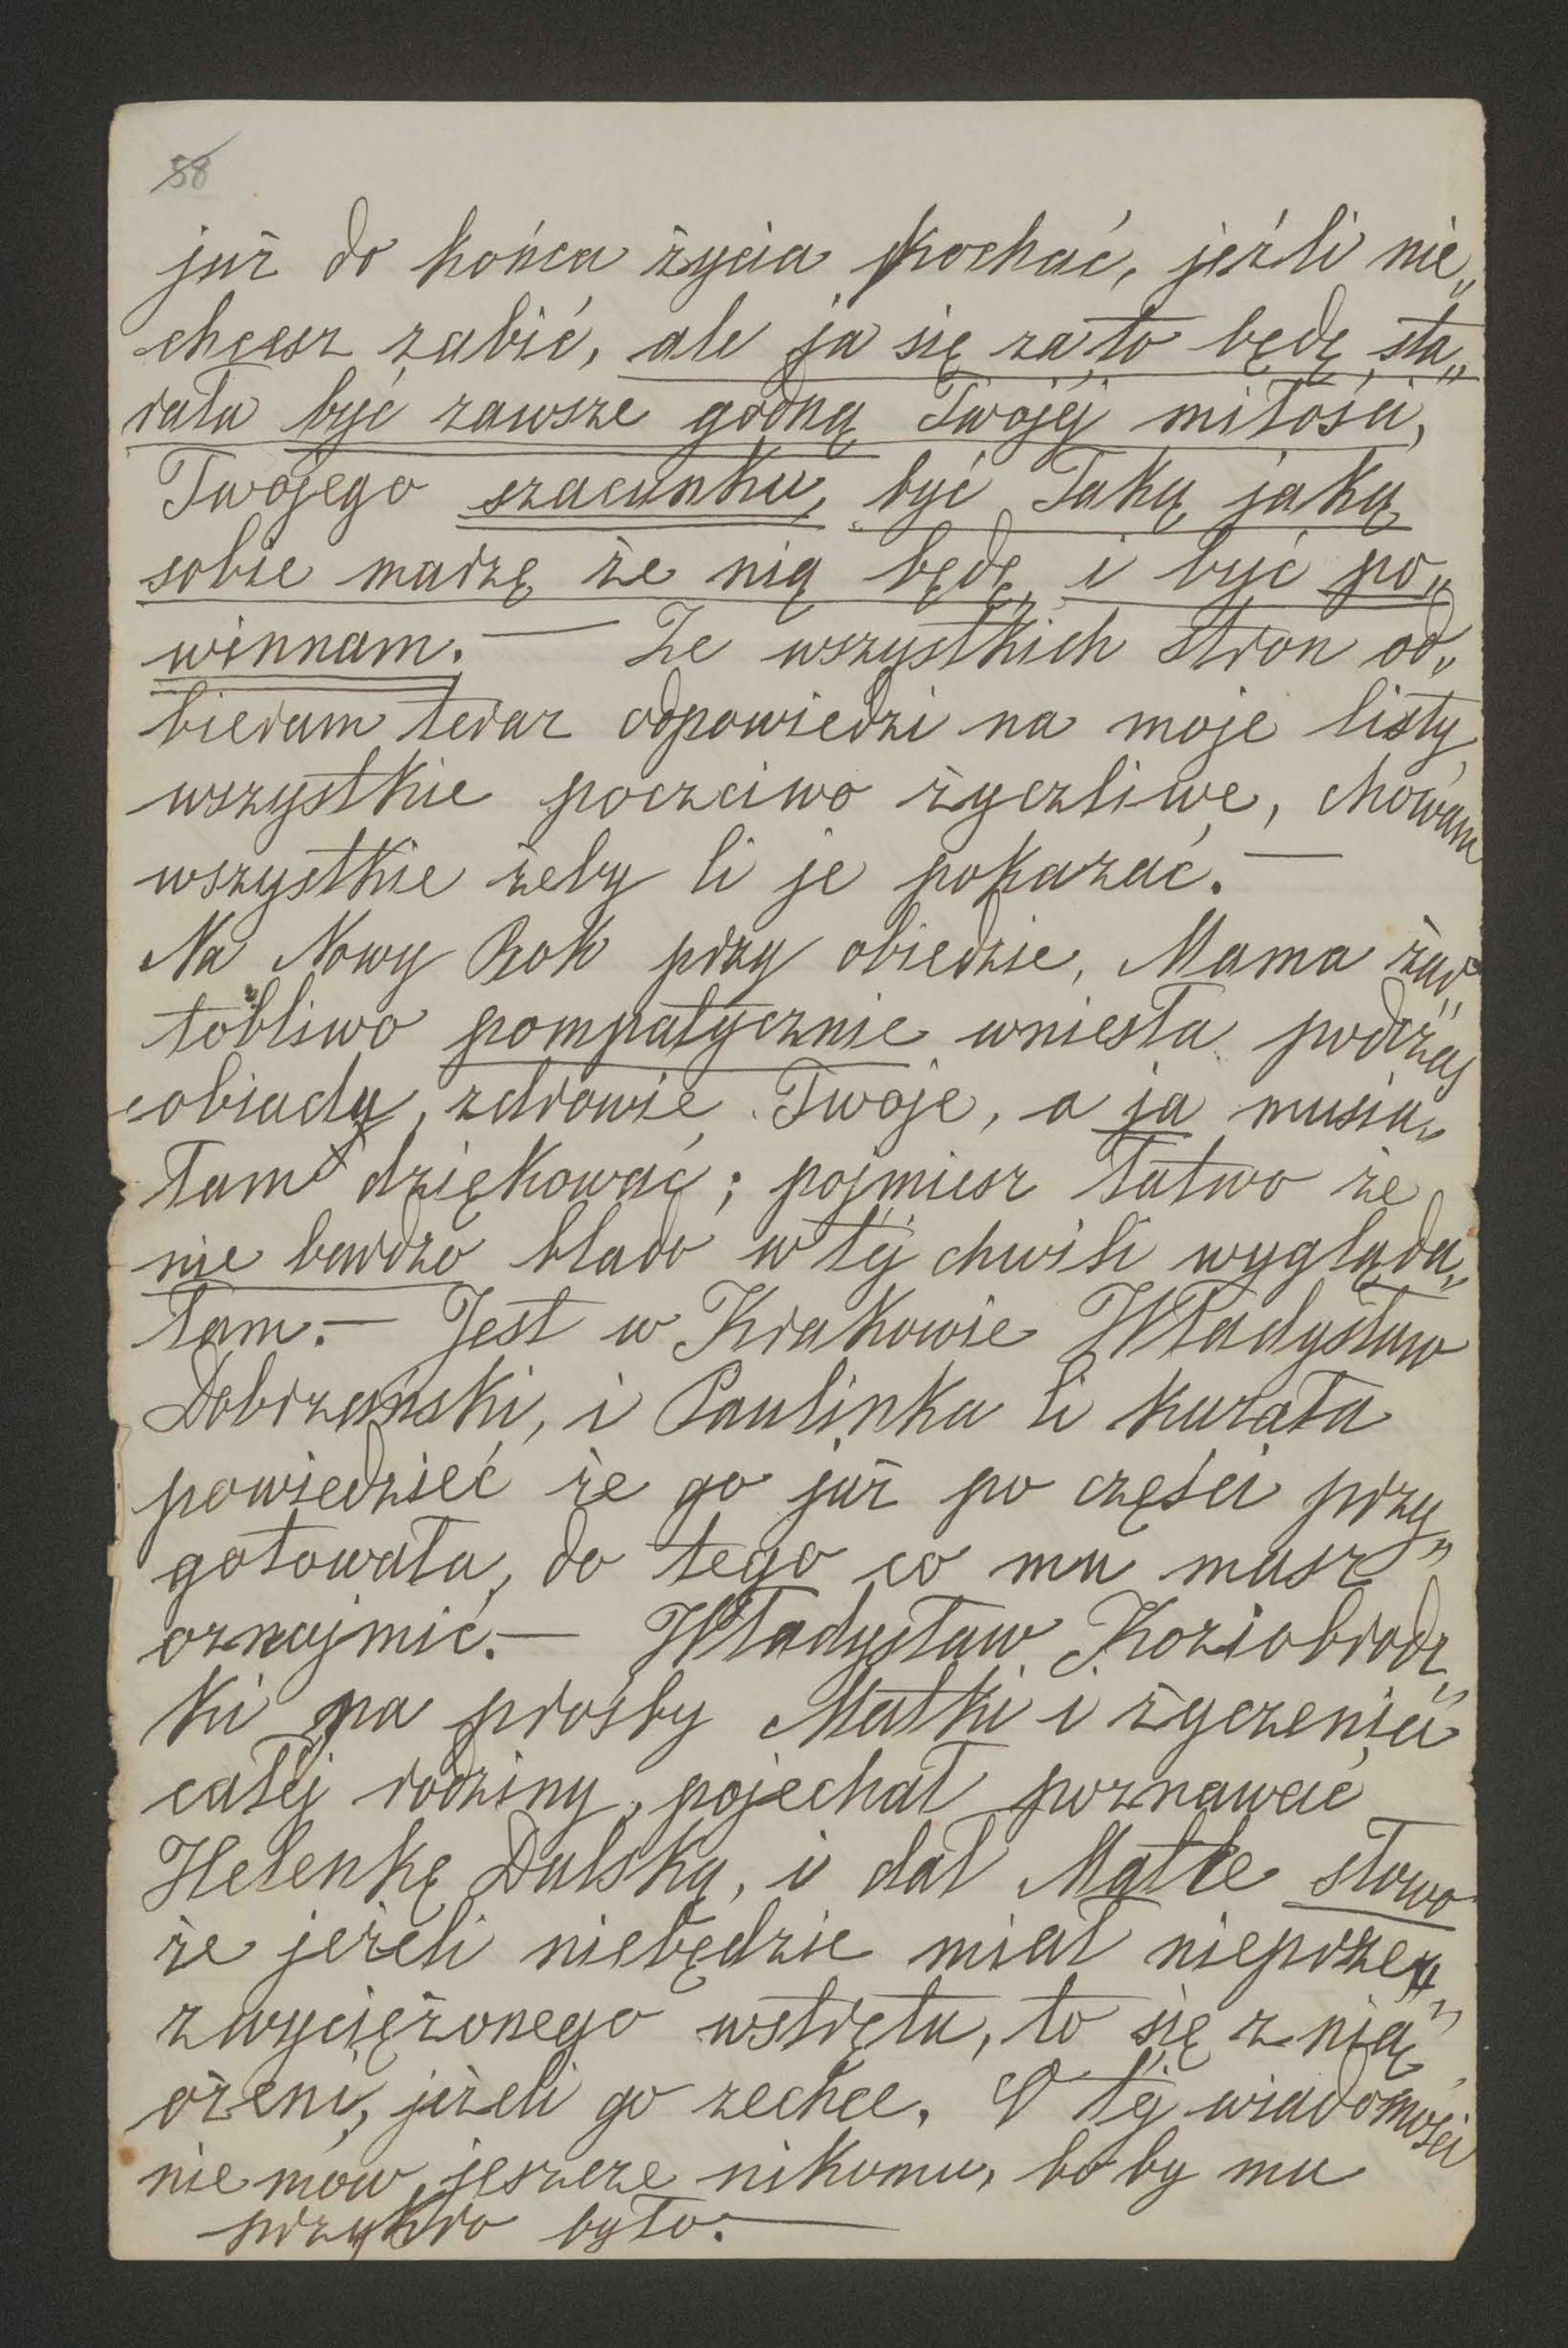 58
już do końca życia kochać, jeźli nie„
chcesz zabić, ale ja się za to będę sta„
rała być zawsze godną Twojéj miłości,
Twojego szacunku, być Taką jaką
sobie marzę że nią będę, i być po„
winnam. — Ze wszystkich stron od„
bieram teraz odpowiedzi na moje listy,
wszystkie poczciwo życzliwe, chowam
wszystkie żeby Ci je pokazać. —
Na Nowy Rok przy obiedzie, Mama żar„
tobliwo pompatycznie wniesła podczas
obiadu, zdrowie Twoje, a ja musia„
łam dziękować; pojmiesz łatwo że
nie bardzo blado w téj chwili wygląda„
łam. — Jest w Krakowie Władysław
Dobrzański, i Paulinka Ci kazała
powiedzieć że go już po części przy„
gotowała, do tego co mu masz
oznajmić. — Władysław Koziobrodz„
ki na prośby Matki i życzenia
całéj rodziny, pojechał poznawać
Helenkę Dulską, i dał Matce słowo
że jeżeli niebędzie miał nieprze„
zwyciężonego wstrętu, to się z nią
ożeni, jeżeli go zechce. O téj wiadomości
nie mów jeszcze nikomu, bo by mu
przykro było. —